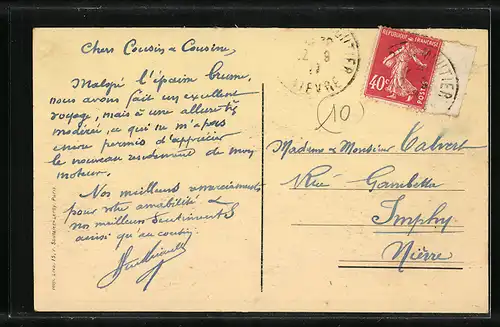 Chers Cousin & Cousine,
Malgré l'épaisse brume,
nous avons fait un excellent
voyage, mais à une allure très
modérée, ce qui ne m'a pas
encore permis d'apprécier
le nouveau rendement de mon
moteur.
Nos meilleurs remerciements
pour votre amabilité &
nos meilleurs sentiments
ainsi qu'au cousin
NIEVRE
RÉPUBLIQUE FRANÇAISE
40c
POSTES
10
Madame & Monsieur Talvert
Rue Gambetta
Imphy
Nièvre